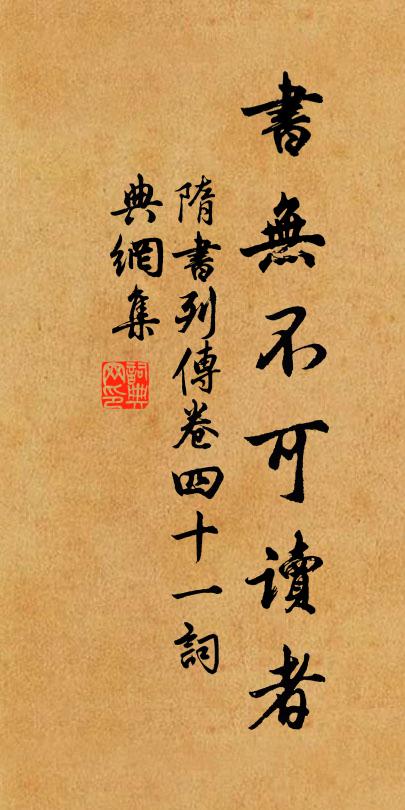 書無不可讀者
隋書列傳卷四十一詞
典網集
詞典網印